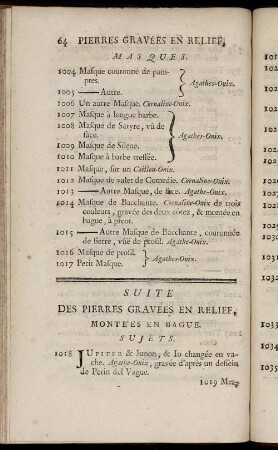 64 PIERRES GRAVÉES EN RELIEF,
MASQUES.
1004 Masque couronné de pam-
pres.
1005 —— Autre.
Agathes-Onix.
1006 Un autre Masque. Cornaline-Onix.
1007 Masque à longue barbe.
1008 Masque de Satyre, vû de
face.
1009 Masque de Silene.
1010 Masque à barbe tressée.
Agathes-Onix.
1011 Masque, sur un Caillou-Onix.
1012 Masque de valet de Comédie. Cornaline-Onix.
1013 —— Autre Masque, de face. Agathe-Onix.
1014 Masque de Bacchante. Cornaline-Onix de trois
couleurs, gravée des deux côtez, & montée en
bague, à pivot.
1015 —— Autre Masque de Bacchante, couronnée
de lierre, vûë de profil. Agathe-Onix.
1016 Masque de profil.
1017 Petit Masque.
Agathes-Onix.
SUITE
DES PIERRES GRAVÉES EN RELIEF,
MONTE'ES EN BAGUE.
SUJETS.
1018 JUPITER & Junon, & Io changée en va-
che. Agathe-Onix, gravée d'après un dessein
de Perin del Vague.
1019 Mer-